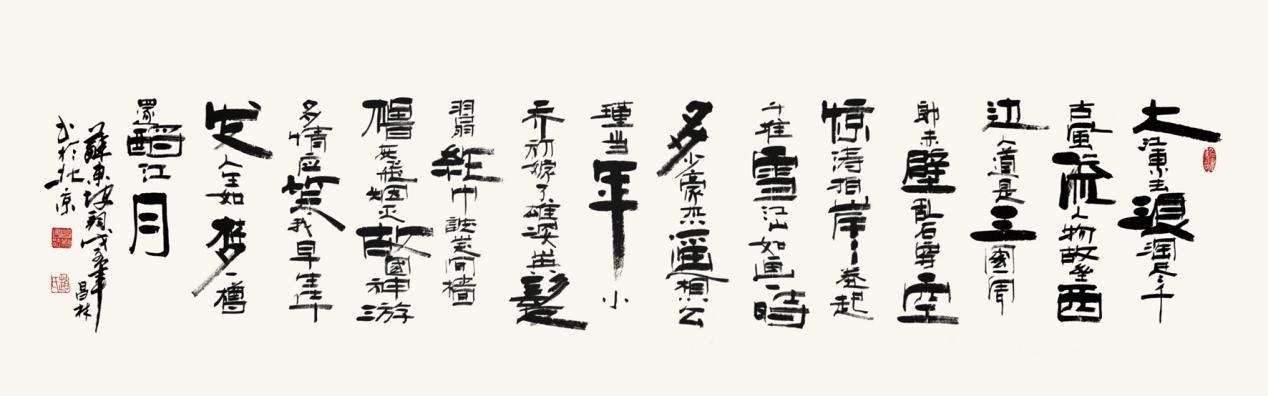 大江東去浪淘尽千
古風流人物故垒西
边人道是三國周
郎赤壁乱石穿空
惊涛拍岸卷起
千堆雪江山如画一時
多少豪杰遥想公
瑾当年小
乔初嫁了雄姿英髮
羽扇纶巾談笑间樯
橹灰飛烟灭故國神游
多情应笑我早生华
发人生如梦一樽
還酹江月
蘇東坡詞 年 昌林
书於北京